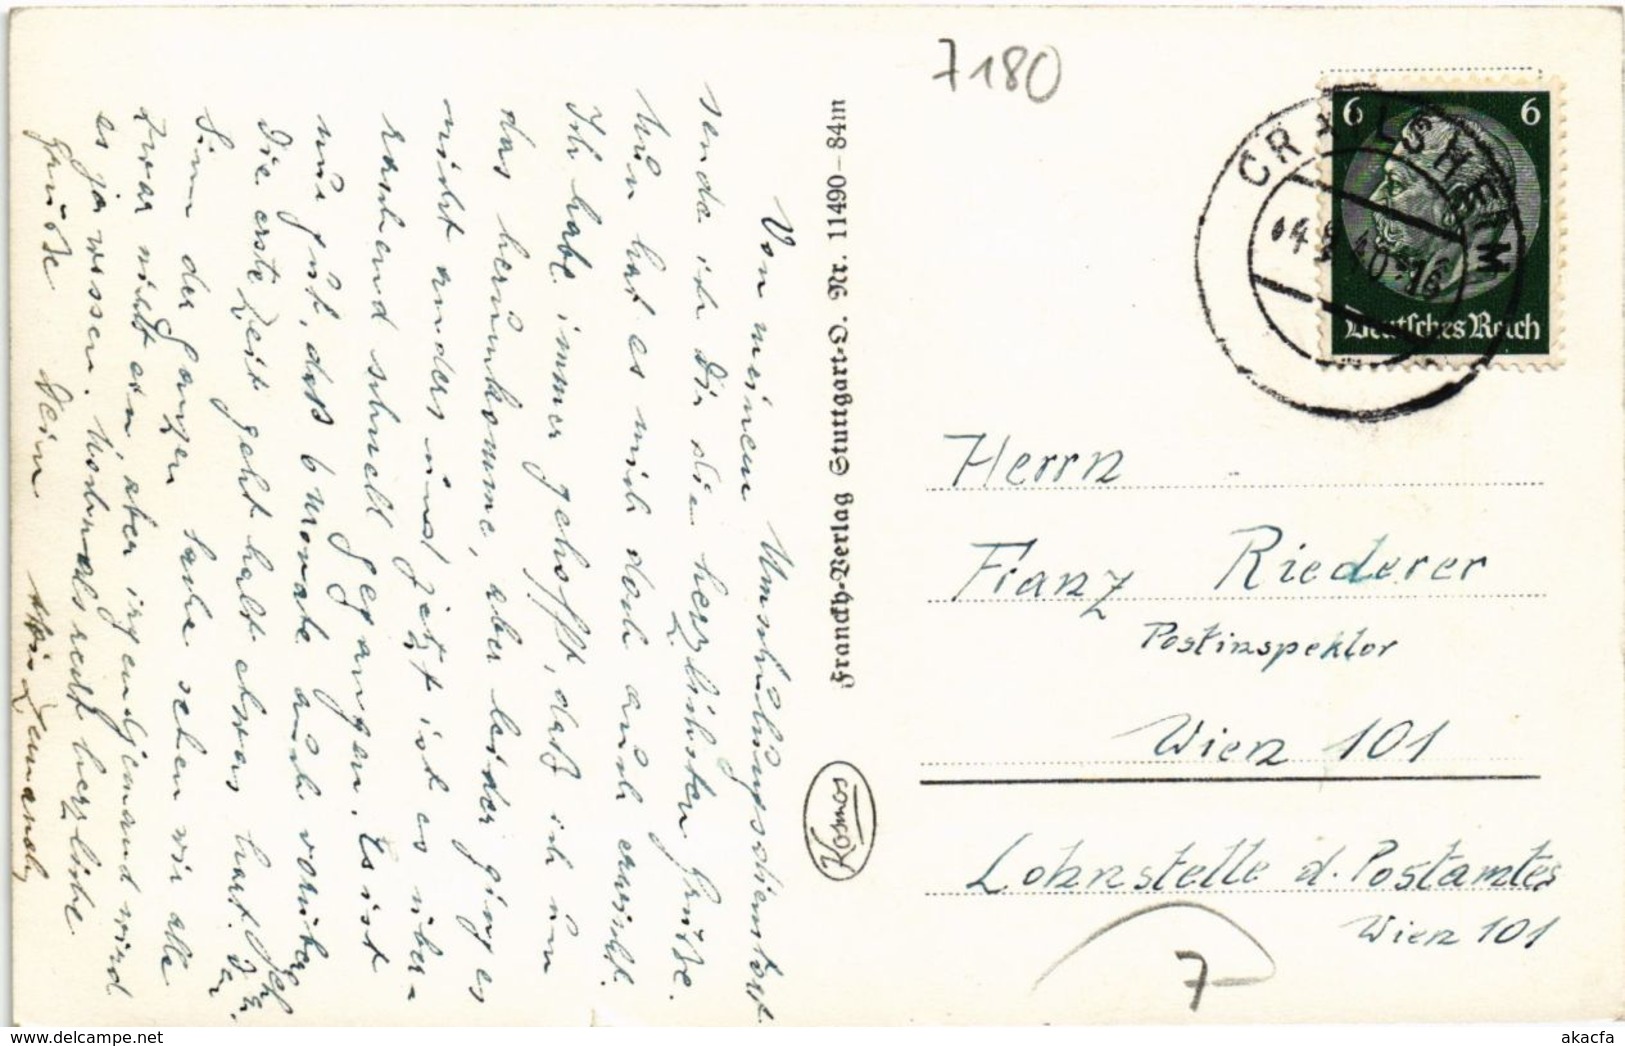 Von meinem Umschulungsdienstort
sende ich Dir die herzlichsten Grüße.
Nun hat es mich doch auch erwischt.
Ich habe immer gehofft, daß ich um
das herumkomme, aber leider ging es
nicht anders und jetzt ist es über-
raschend schnell gegangen. Es ist
nur gut, daß 6 Monate auch vorüber geh
Die erste Zeit geht halt etwas hart. Den
Sinn der ganzen Sache sehen wir alle
zwar nicht ein, aber irgendjemand wird
es ja wissen. Nochmals recht herzliche
Grüße Dein
Franckh-Verlag Stuttgart-O. Nr. 11490-84m
Kosmos
7180
6 6
Deutsches Reich
CRAILSHEIM
40-16
Herrn
Franz Riederer
Postinspektor
Wien 101
Lohnstelle d. Postamtes
Wien 101
7
www.delcampe.net
akacfa